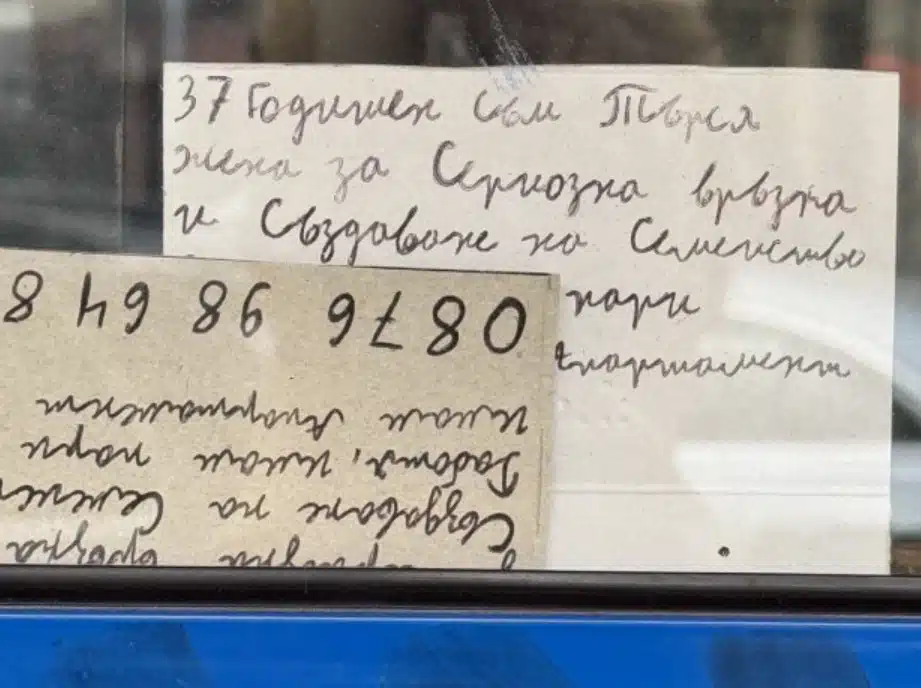 37 Годишен съм Търся
жена за Сериозна връзка
и Създаване на Семеиство
пари
Апартамент
връзка
Създаване на Семеи
Работя, имам пари
имам Апартамент
0876 98 64 8